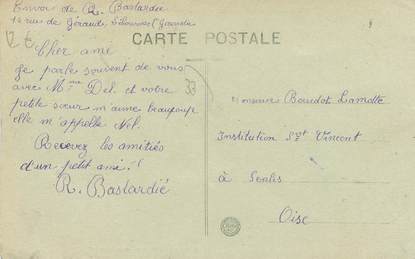 Envoi de R. Bastardié
12 rue de Géraude Libourne (Gironde
CARTE POSTALE
Cher ami
Je parle souvent de vous
avec Mme Del. et votre
petite sœur m'aime beaucoup
elle m'appelle Nel.
Recevez les amitiés
d'un petit ami!
R. Bastardié
Monsieur Boudot Lamotte
Institution St Vincent
à Senlis
Oise